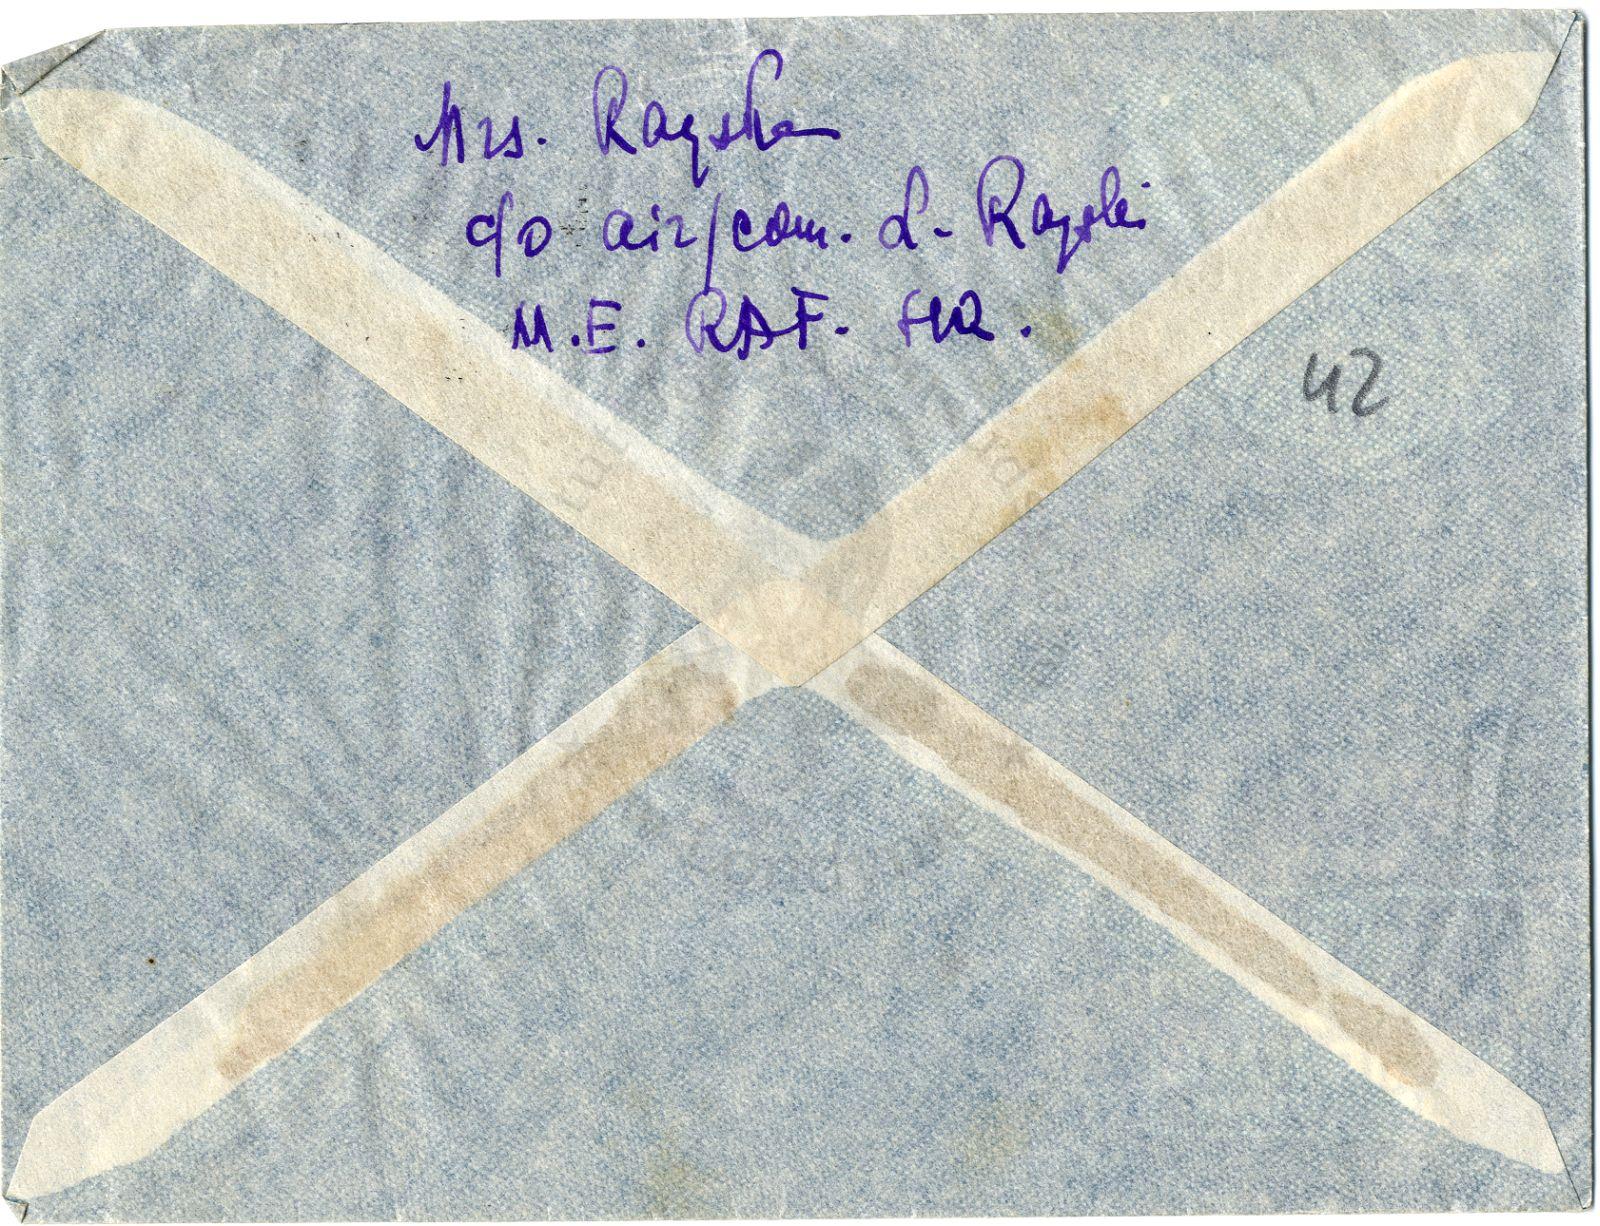 Mrs. Rayska
c/o air/com. L. Rayski
M.E. RAF. HQ.
42